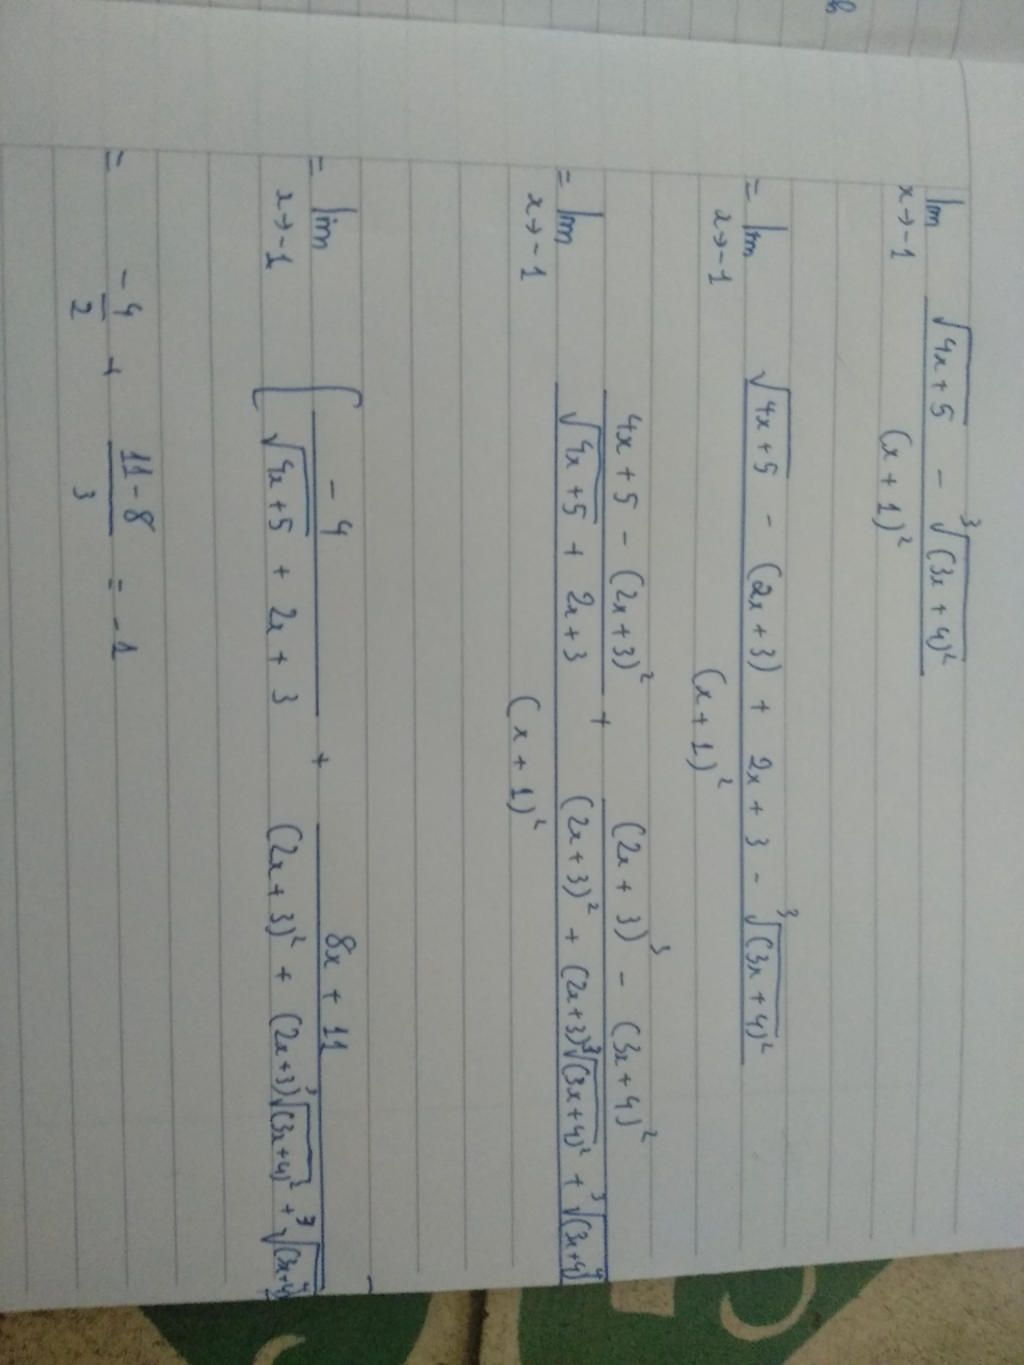 lim x→-1 (√(4x+5) - ∛((3x+4)²)) / (x+1)²
= lim x→-1 (√(4x+5) - (2x+3) + 2x+3 - ∛((3x+4)²)) / (x+1)²
= lim x→-1 ((4x+5 - (2x+3)²) / (√(4x+5) + 2x+3) + ((2x+3)³ - (3x+4)²) / ((2x+3)² + (2x+3)∛((3x+4)²) + ∛((3x+4)⁴))) / (x+1)²
= lim x→-1 [-4 / (√(4x+5) + 2x+3) + (8x+11) / ((2x+3)² + (2x+3)∛((3x+4)²) + ∛((3x+4)⁴))]
= -4/2 + (11-8)/3 = -1